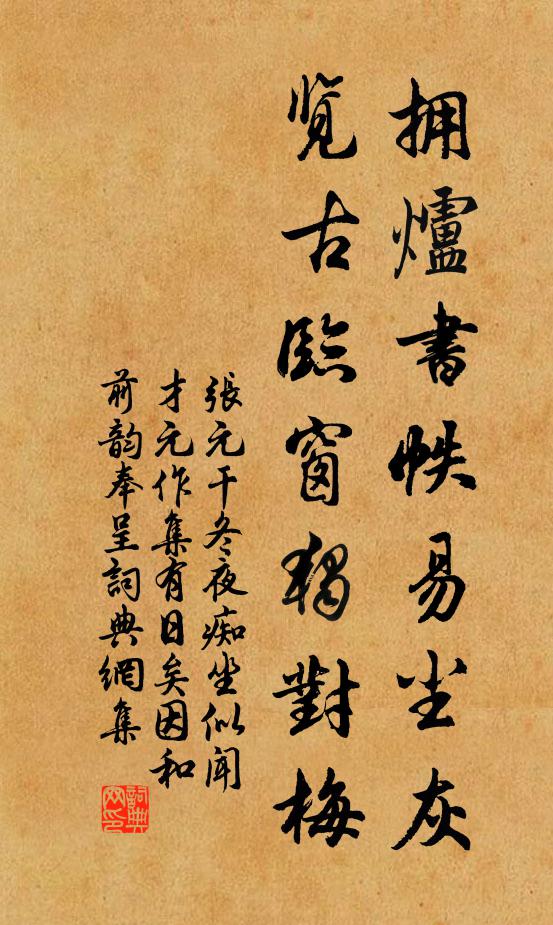 拥爐書帙易尘灰
览古臨窗獨對梅
張元干冬夜痴坐似聞
才元作集有日矣因和
前韵奉呈詞典網集
詞典网印